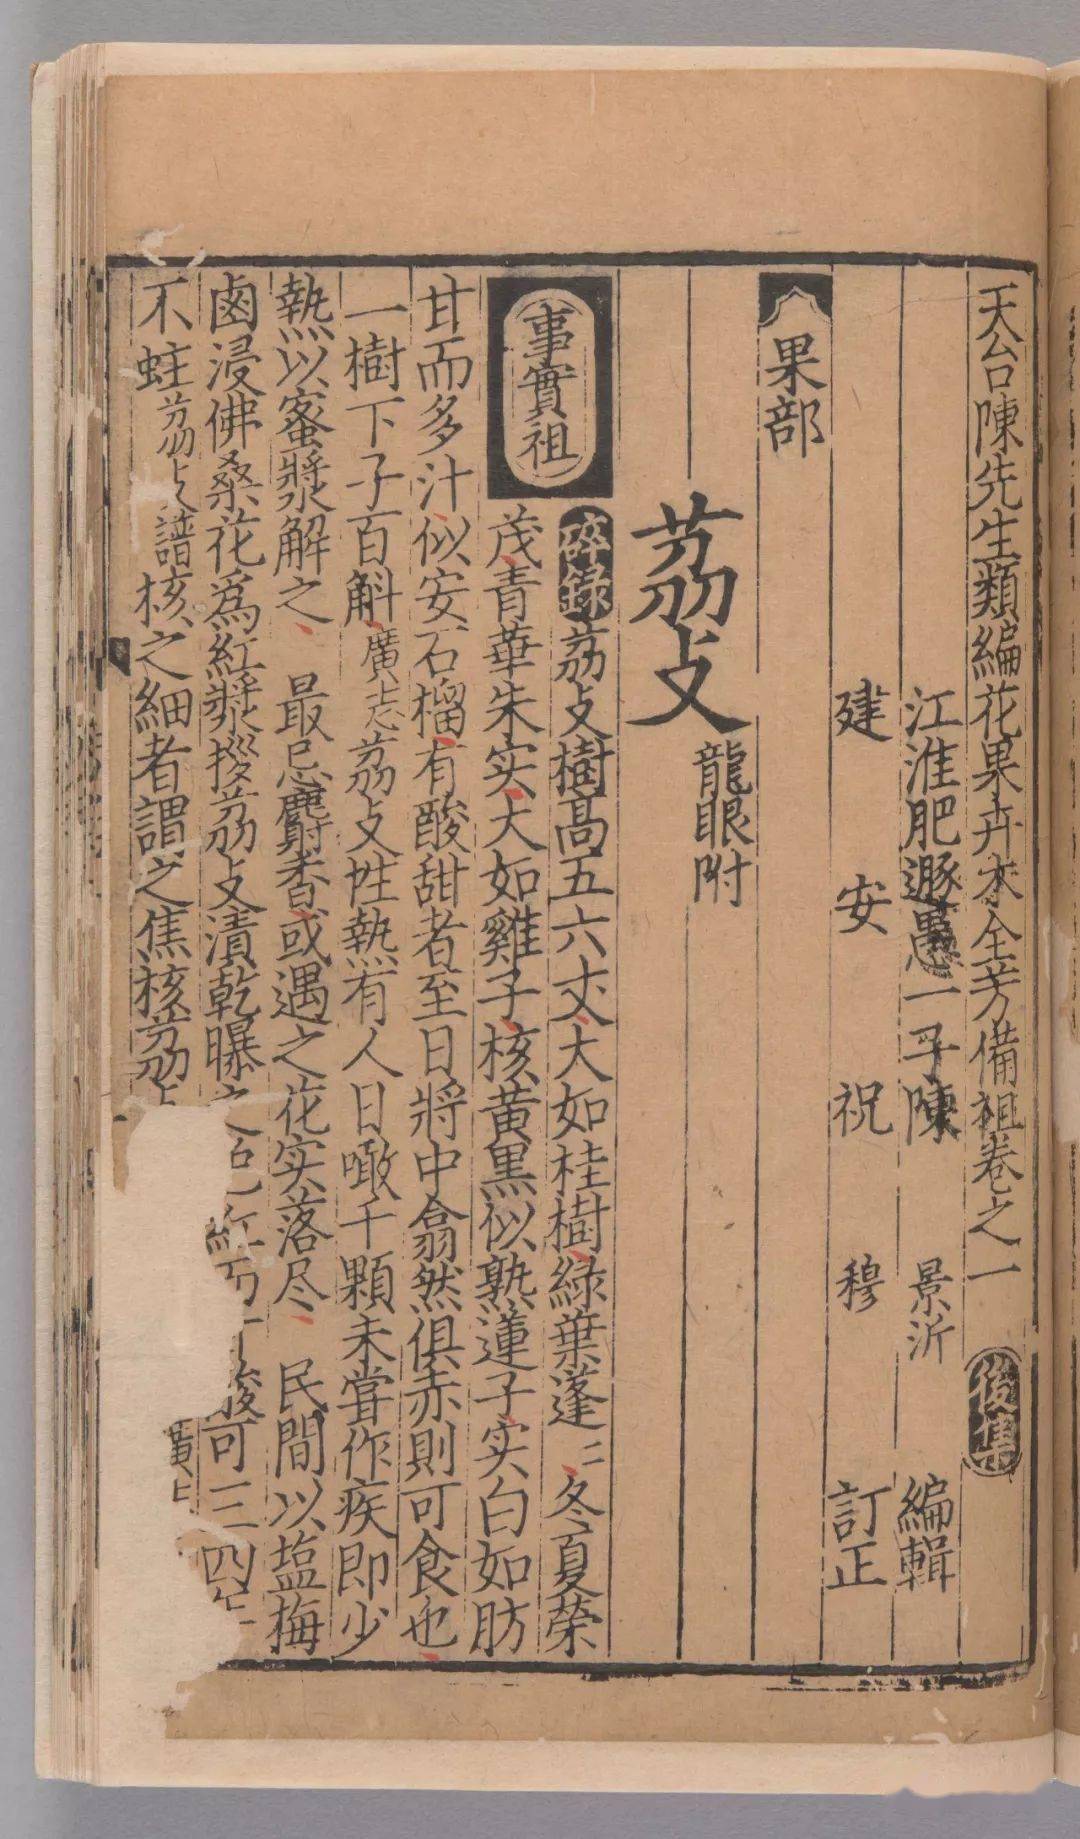 天台陳先生類編花果卉木全芳備祖卷之一 後集
江淮肥遯愚一子陳 景沂 編輯
建安祝 穆 訂正
果部
荔攴 龍眼附
事實祖
碎錄 荔攴樹高五六丈大如桂樹綠葉蓬〻冬夏荣
茂青華朱实大如雞子核黃黑似熟蓮子实白如肪
甘而多汁似安石榴有酸甜者至日將中翕然俱赤則可食也
一樹下子百斛廣志荔攴性熱有人日噉千顆未嘗作疾即少
熱以蜜漿解之 最忌麝香或遇之花实落尽 民間以塩梅
鹵浸佛桑花爲紅漿投荔攴漬乾曝之色紅而甘酸可三四年
不蛀荔攴譜核之細者謂之焦核荔 廣